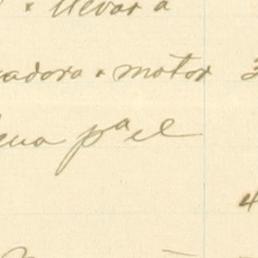 llevar a
adora " motor 3
ena pa el
4